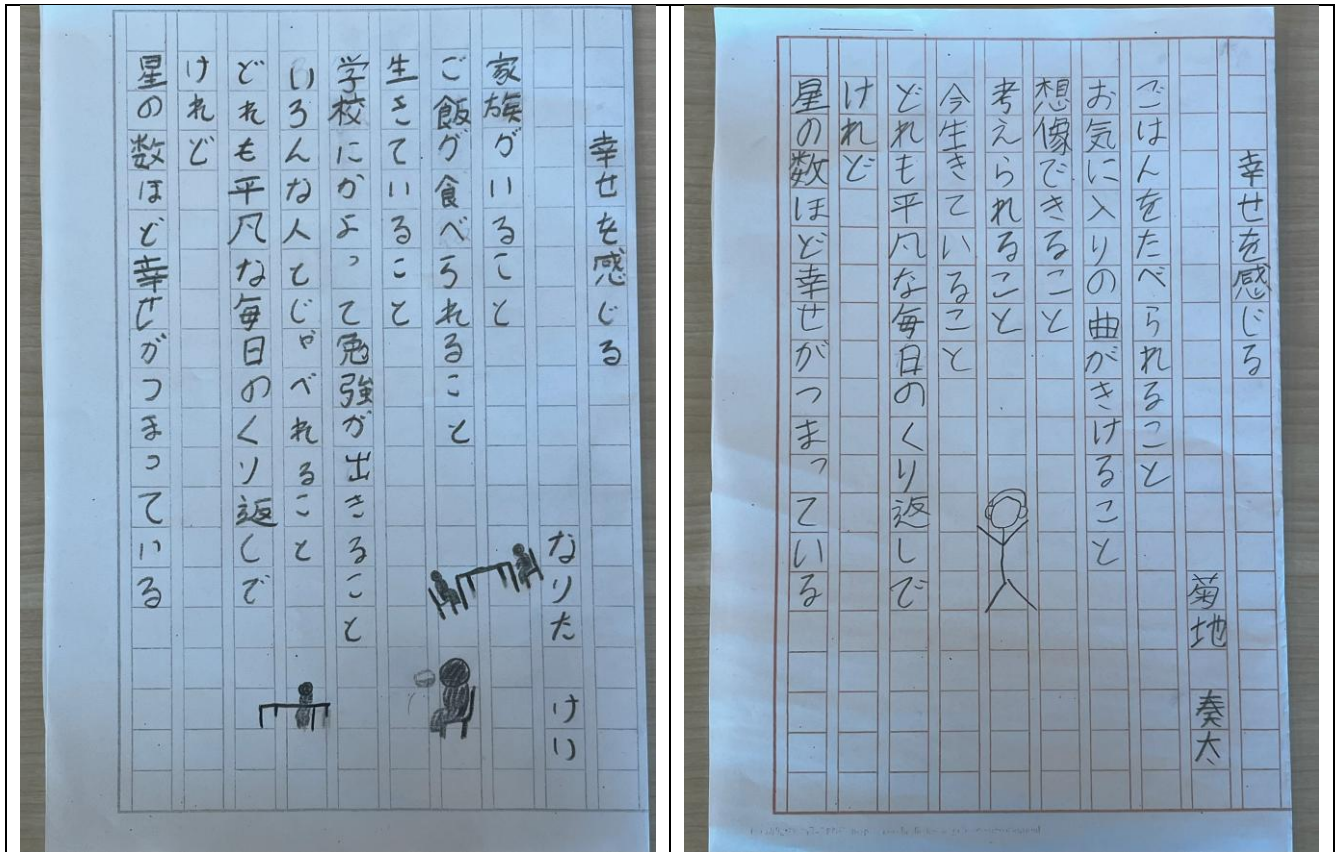 幸せを感じる
なりた けい
家族がいること
ご飯が食べられること
生きていること
学校にかよって勉強が出きること
いろんな人としゃべれること
どれも平凡な毎日のくり返しで
けれど
星の数ほど幸せがつまっている
幸せを感じる
菊地 奏太
ごはんをたべられること
お気に入りの曲がきけること
想像できること
考えられること
今生きていること
どれも平凡な毎日のくり返しで
けれど
星の数ほど幸せがつまっている